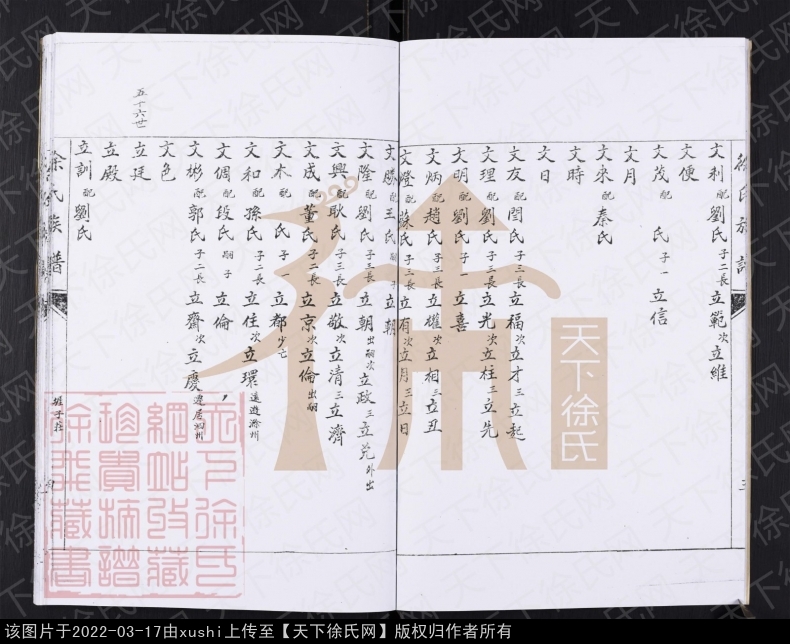 徐氏族譜
文利配劉氏子二長立範次立維
文便
文茂配 氏子一立信
文月
文來配秦氏
文時
文日
文友配閆氏子三長立福次立才三立起
文理配劉氏子三長立光次立柱三立先
文明配劉氏子一立喜
文炳配趙氏子三長立雄次立相三立丑
文燈配蘇氏子三長立有次立月三立日
文勝配王氏嗣子立朝
文隆配劉氏子三長立朝出嗣次立政三立兑外出
文興配耿氏子三長立敬次立清三立濟
文成配董氏子二長立京次立倫出嗣
文本配 氏子一立都少亡
文和配孫氏子二長立住次立環遠遊滁州
文倜配段氏嗣子立倫
文彬配郭氏子二長立齋次立慶遷居泗州
文色
五十六世
立廷
立殿
立訓配劉氏
徐氏族譜
天下徐氏
天下徐氏
網站收藏
珍貴族譜
徐飛藏書
该图片于2022-03-17由xushi上传至【天下徐氏网】版权归作者所有